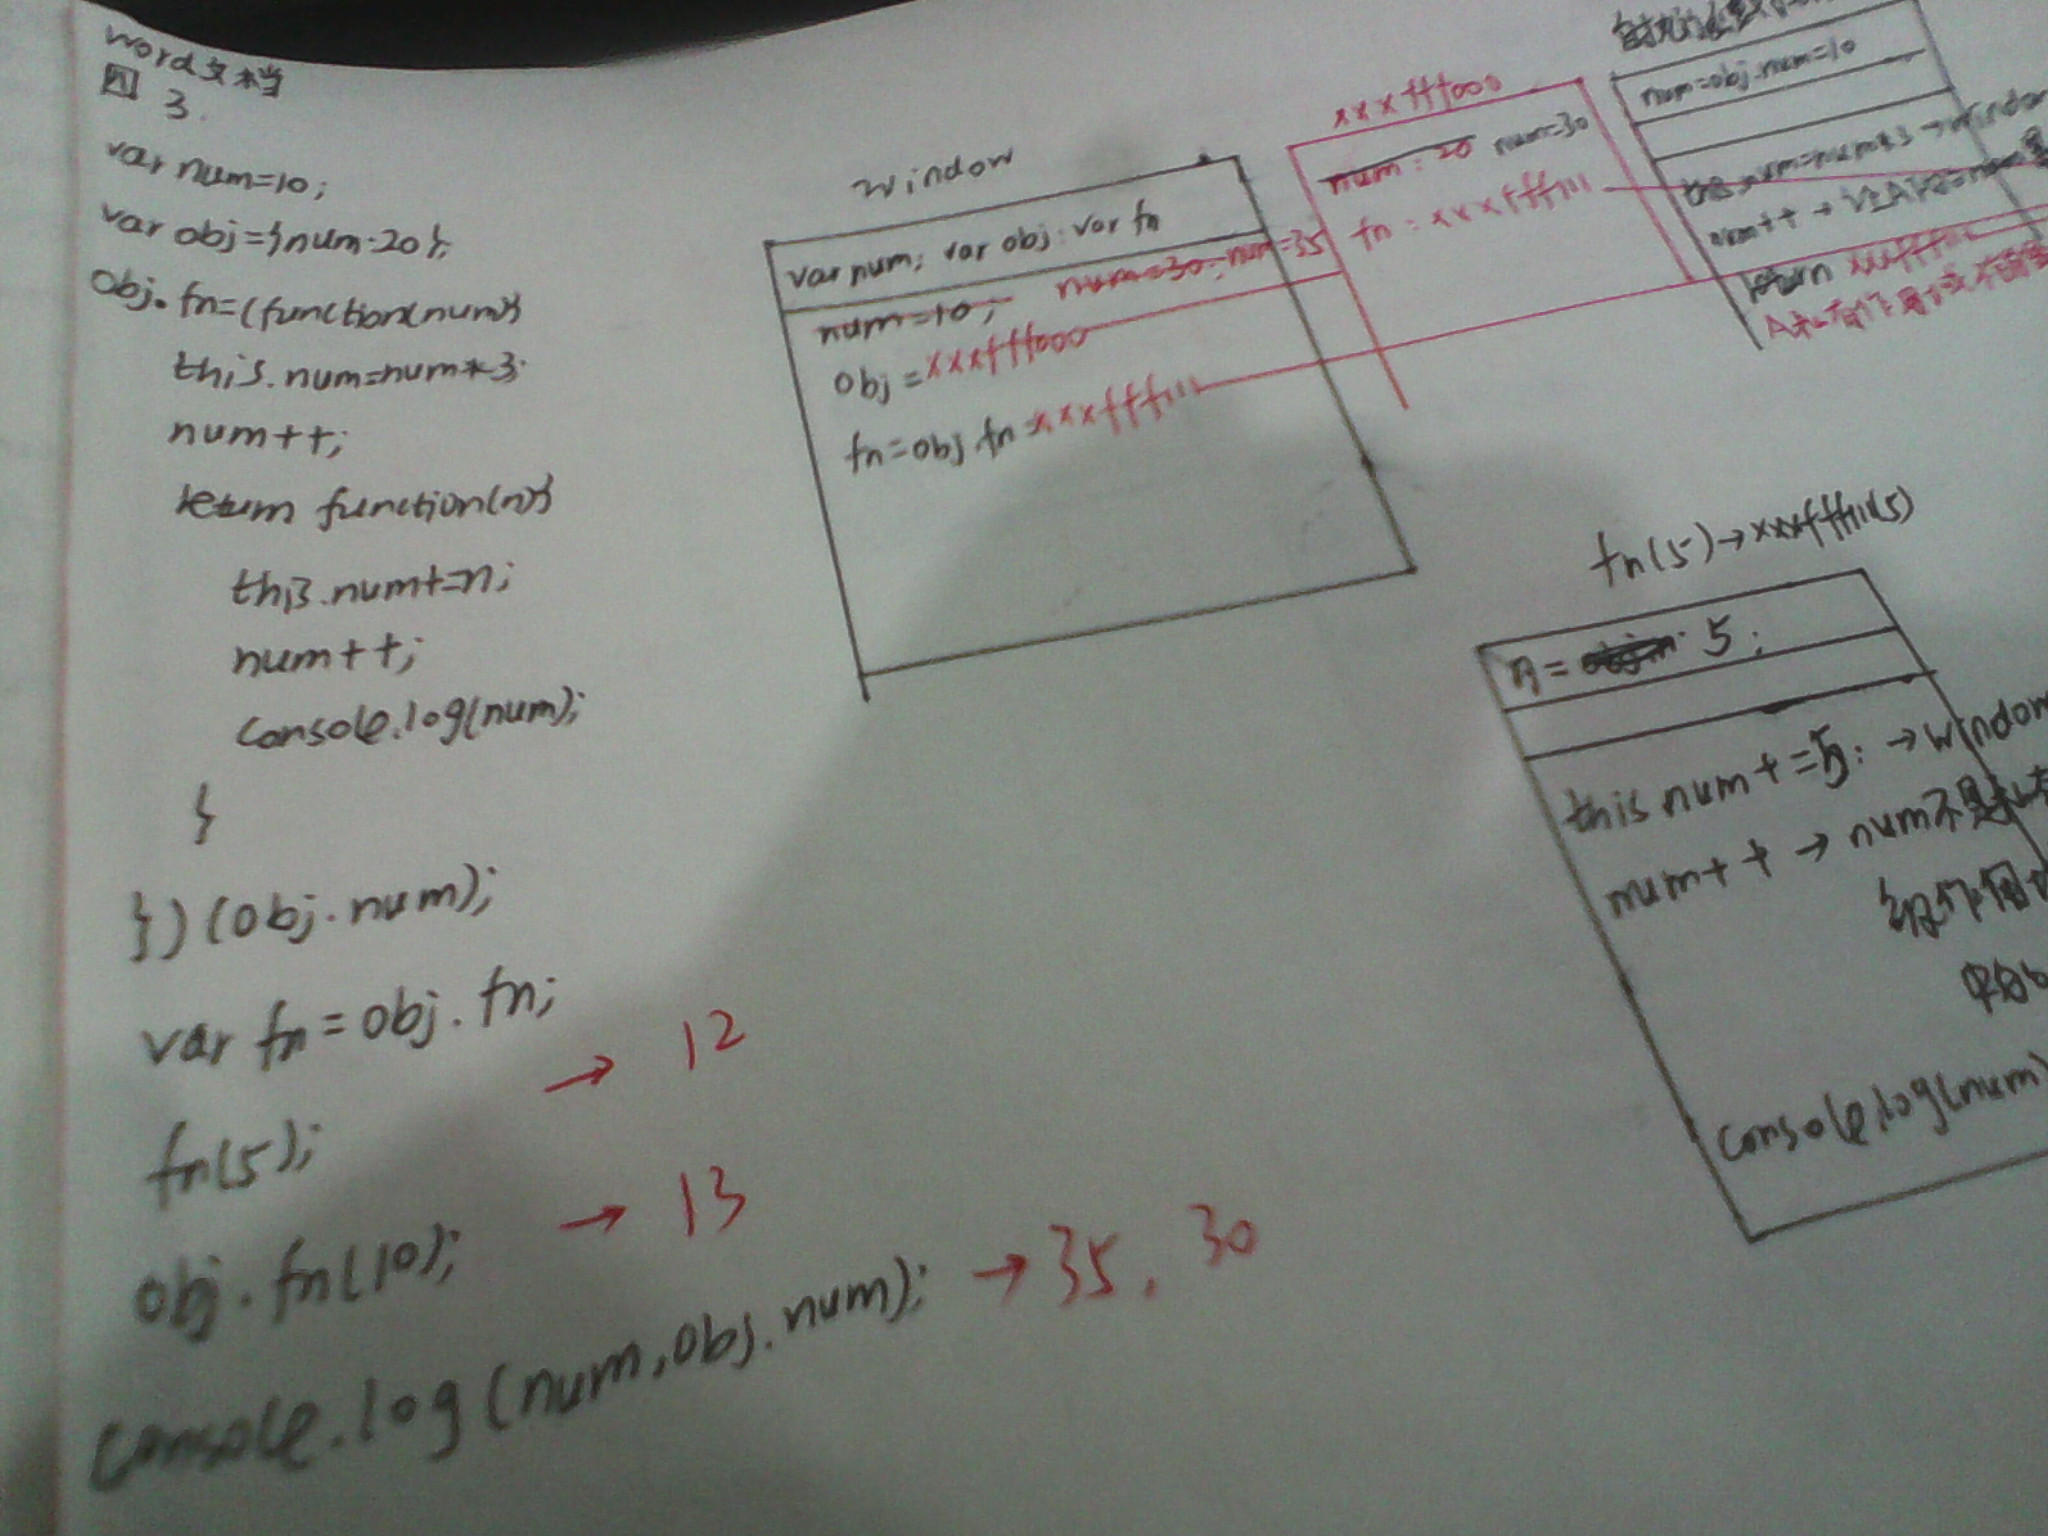 word文档
图 3.
var num=10;
var obj={num:20};
obj.fn=(function(num){
this.num=num*3;
num++;
return function(n){
this.num+=n;
num++;
console.log(num);
}
})(obj.num);
var fn=obj.fn;
fn(5); → 12
obj.fn(10); → 13
console.log(num,obj.num); → 35, 30
window
var num; var obj; var fn
num=10; num=30; num=35
obj=xxxfff000
fn=obj.fn=xxxfff111
xxxfff000
num:20 num=30
fn:xxxfff111
num=obj.num=10
this.num=num*3→window
num++→
return xxxfff111
fn(5)→xxxfff111(5)
n= 5;
this num+=5;→window
num++→num不是私有
级作用
中的
console.log(num)